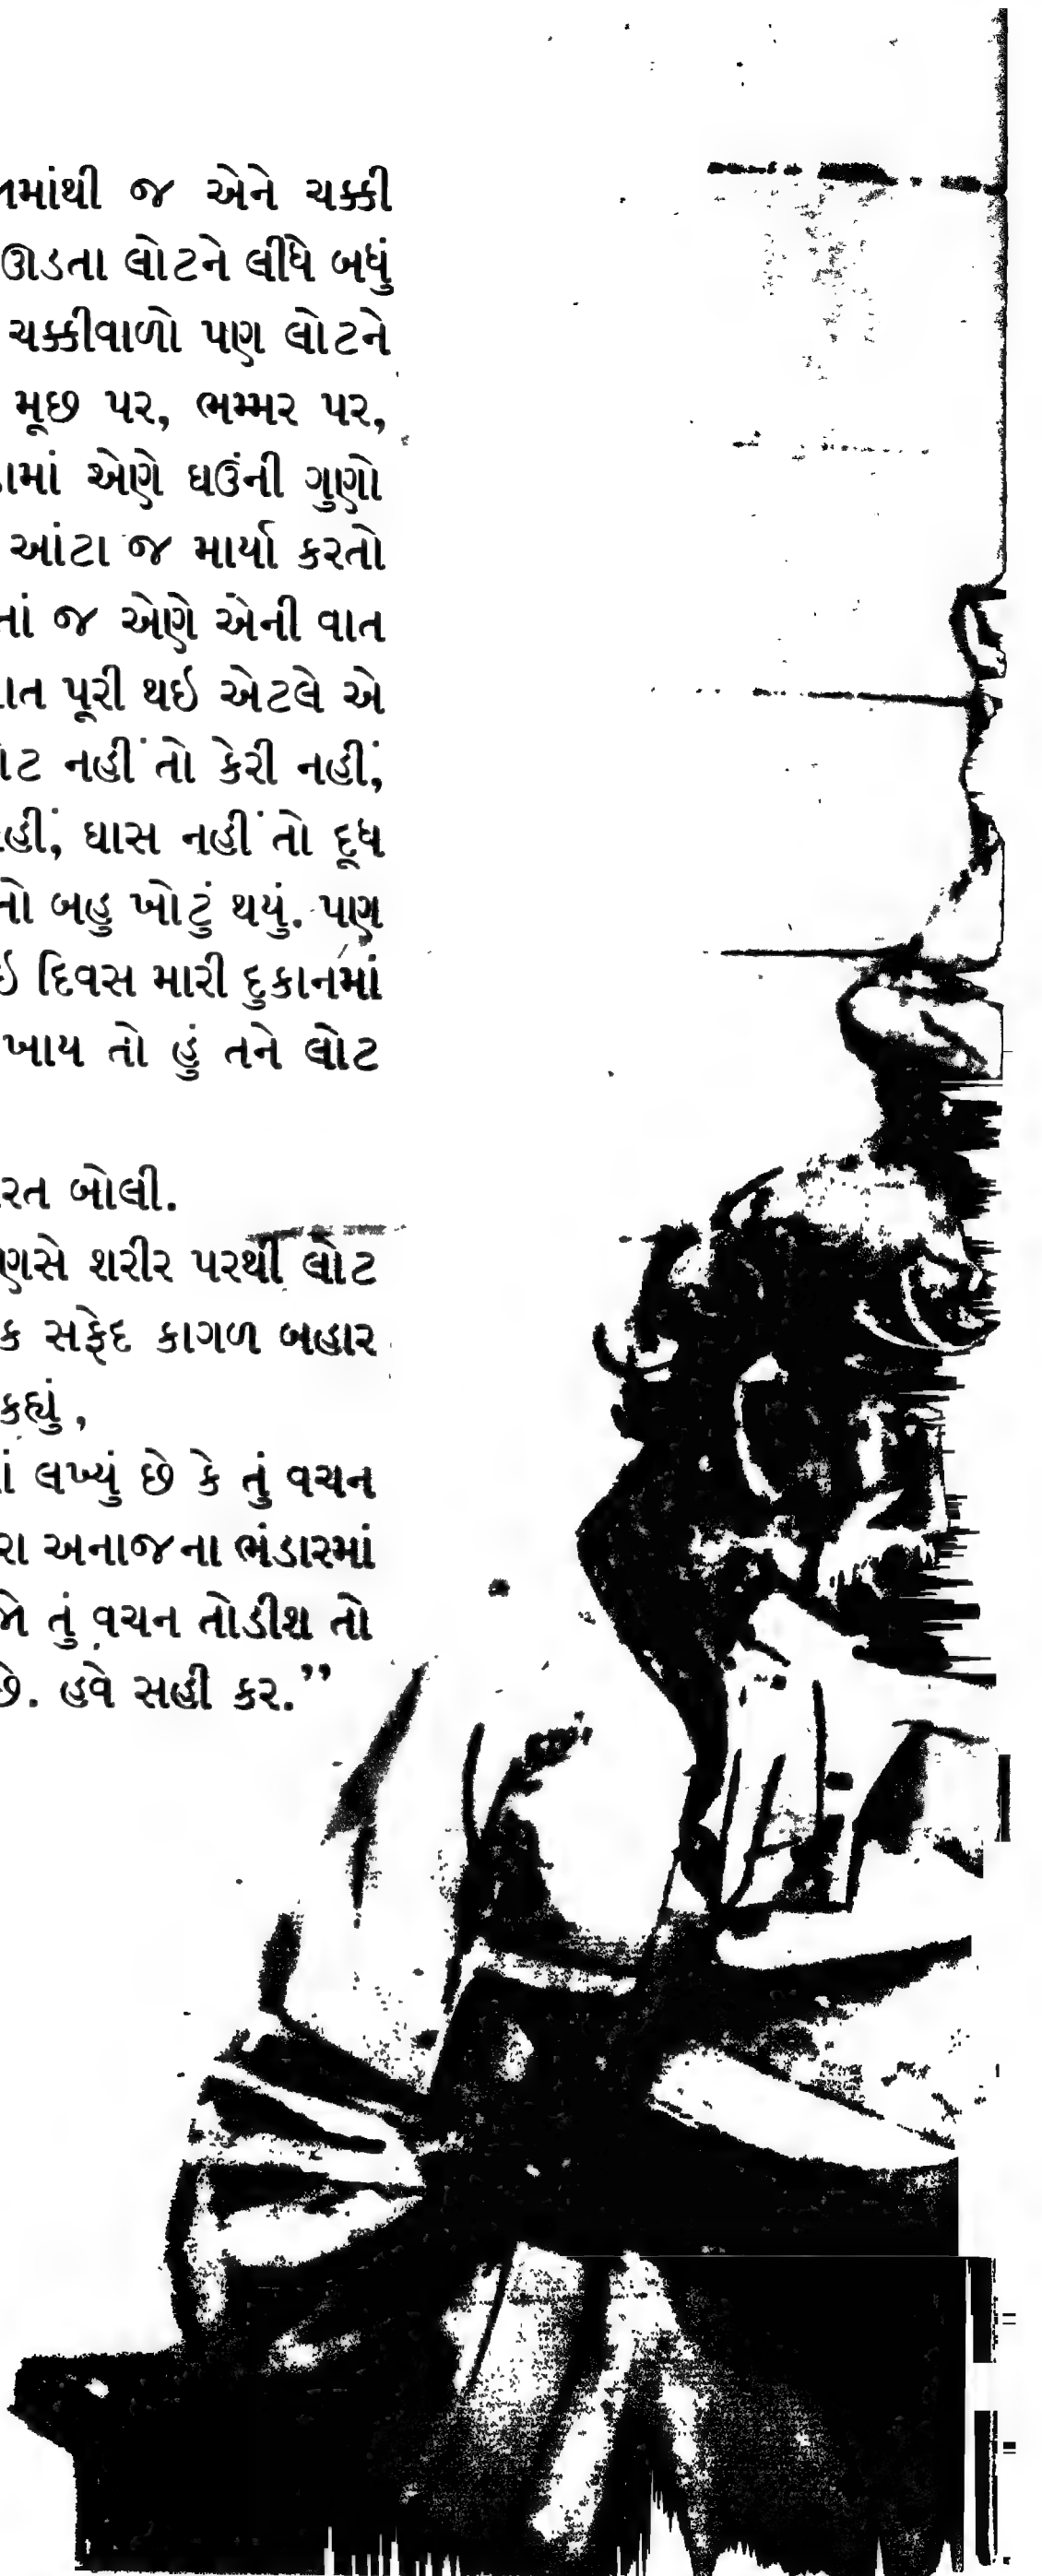 જ એને ચક્કી
ઊડતા લોટને લીધે બધું
ચક્કીવાળો પણ લોટને
મૂછ પર, ભમ્મર પર,
એણે ઘઉંની ગુણો
આંટા જ માર્યા કરતો
જ એણે એની વાત
પૂરી થઇ એટલે એ
નહીં તો કેરી નહીં,
ઘાસ નહીં તો દૂધ
બહુ ખોટું થયું. પણ
દિવસ મારી દુકાનમાં
ખાય તો હું તને લોટ
બોલી.
શરીર પરથી લોટ
સફેદ કાગળ બહાર
કહ્યું,
લખ્યું છે કે તું વચન
અનાજના ભંડારમાં
તું વચન તોડીશ તો
છે. હવે સહી કર.”